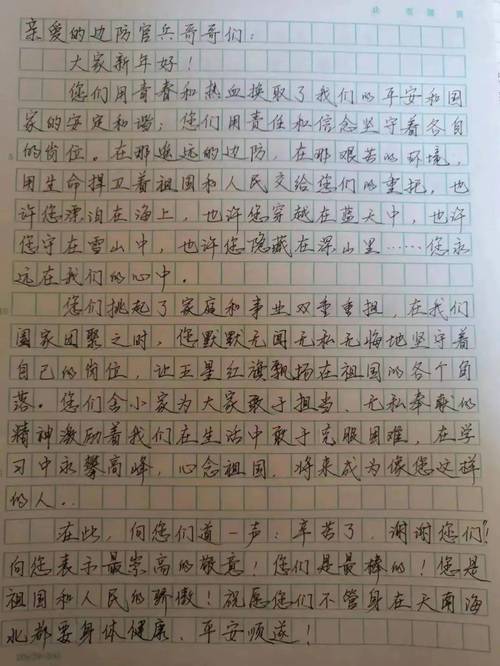 亲爱的边防官兵哥哥们：
大家新年好！
您们用青春和热血换取了我们的平安和国
家的安定和谐；您们用责任和信念坚守着各自
的岗位。在那遥远的边防，在那艰苦的环境，
用生命捍卫着祖国和人民交给您们的重托，也
许您漂泊在海上，也许您穿越在蓝天中，也许
您守在雪山中，也许您隐藏在深山里……您永
远在我们的心中。
您们挑起了家庭和事业双重重担，在我们
阖家团聚之时，您默默无闻无私无悔地坚守着
自己的岗位，让五星红旗飘扬在祖国的各个角
落。您们舍小家为大家敢于担当、无私奉献的
精神激励着我们在生活中敢于克服困难，在学
习中永攀高峰，心念祖国，将来成为像您这样
的人..
在此，向您们道一声：辛苦了，谢谢您们！
向您表示最崇高的敬意！您们是最棒的！您是
祖国和人民的骄傲！祝愿您们不管身在天南海
北都要身体健康、平安顺遂！